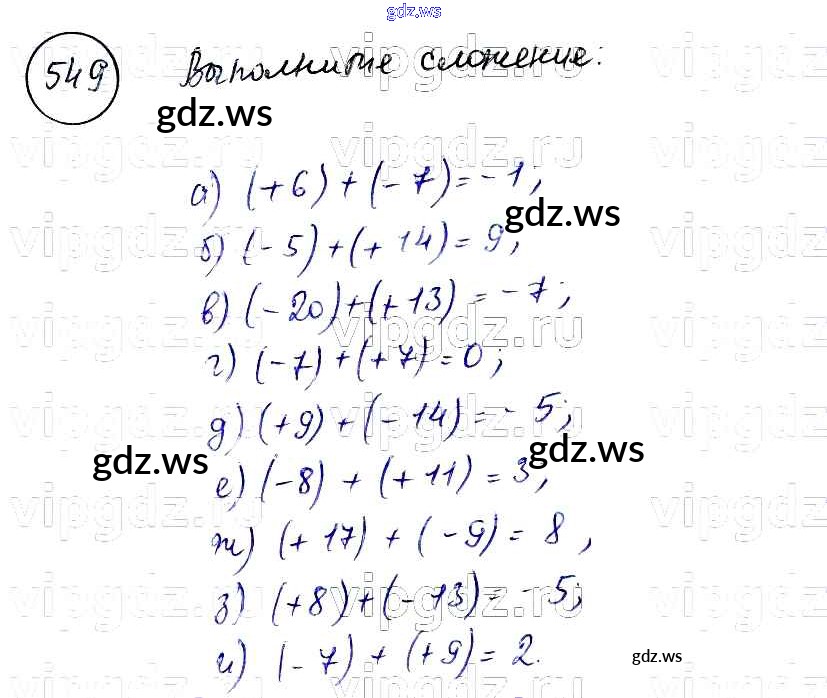 gdz.ws
549 Выполните сложение:
gdz.ws
vipgdz.ru
а) (+6) + (-7) = -1;
gdz.ws
б) (-5) + (+14) = 9;
в) (-20) + (+13) = -7;
г) (-7) + (+7) = 0;
д) (+9) + (-14) = -5;
gdz.ws
gdz.ws
е) (-8) + (+11) = 3;
ж) (+17) + (-9) = 8,
з) (+8) + (-13) = -5;
и) (-7) + (+9) = 2.
gdz.ws